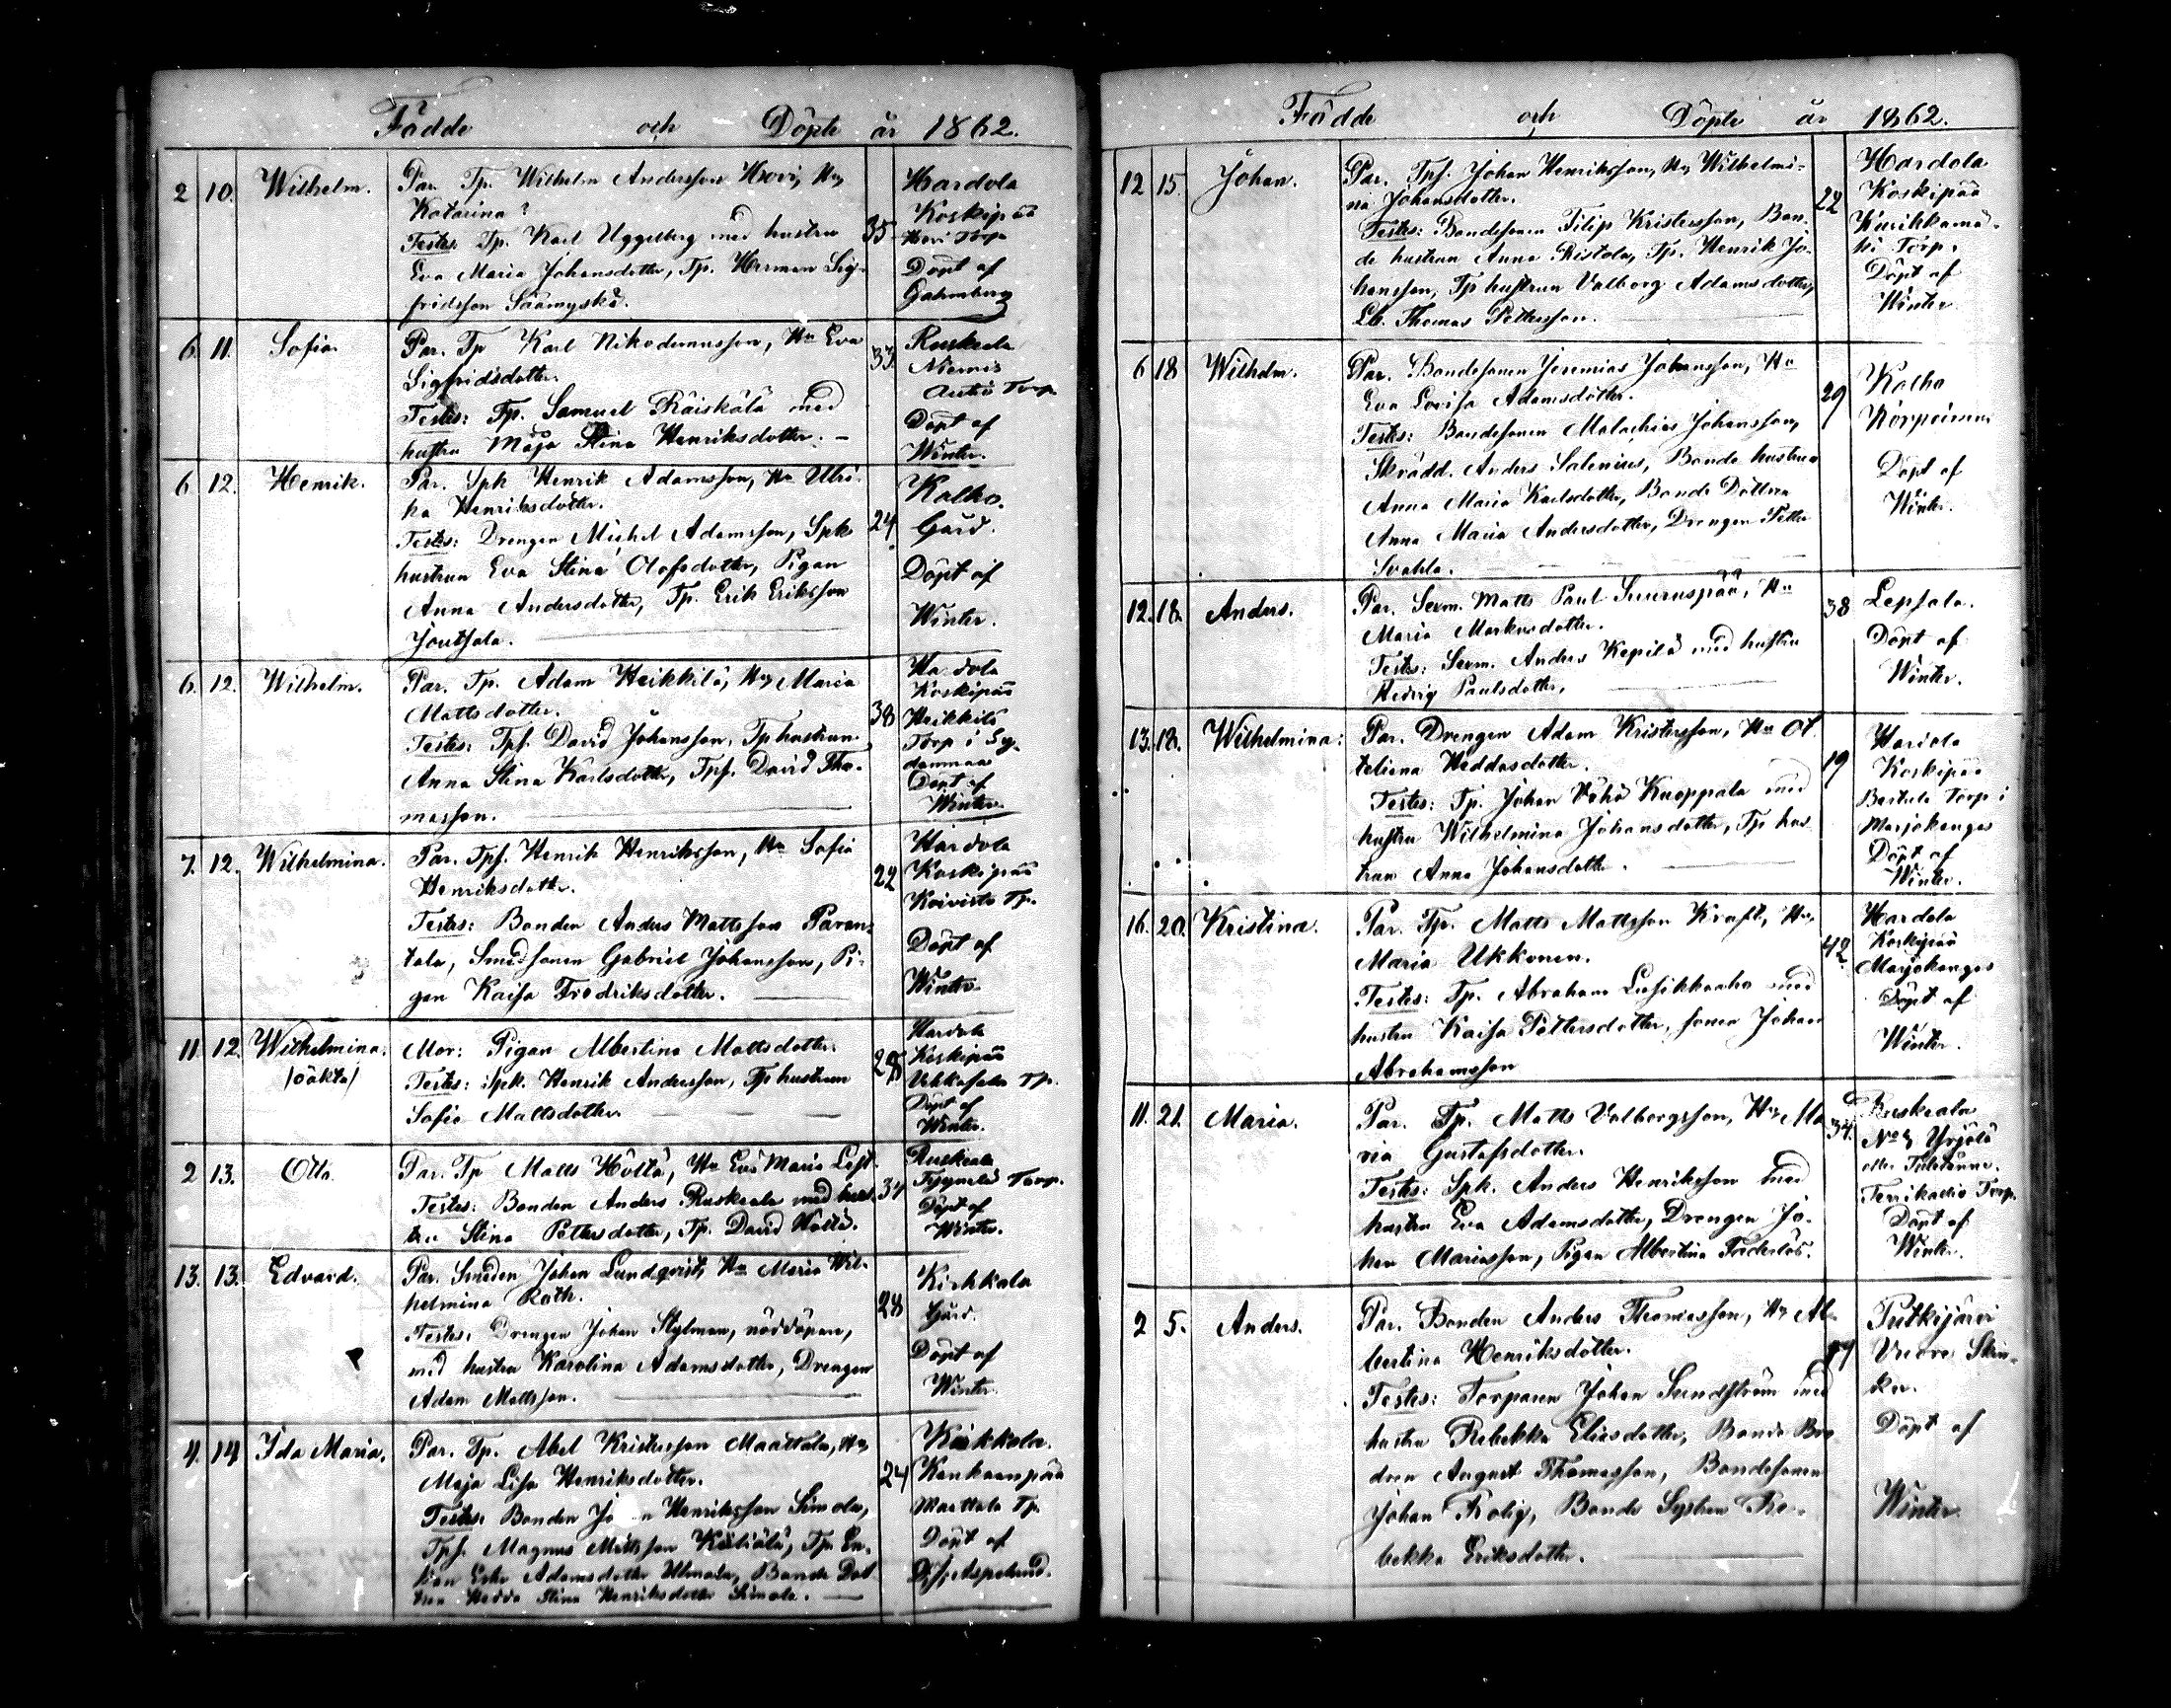 Födde och Döpte år 1862.
2 10. Wilhelm. Par. Tp. Wilhelm Andersson Hovi, Hu
Katarina ?
Testes: Tp. Karl Uggelberg med hustru
Eva Maria Johansdotter, Tp. Herman Sig-
fridsson
35
Kardola
Koskipää
Hovi Torp
Döpt af
6. 11. Sofia. Par. Tp Karl Nikodemusson, Hu Eva
Sigfridsdotter.
Testes: Tp. Samuel Räiskälä med
hustru Maja Stina Henriksdotter. —
33.
Ruskeala
Niemis
Torp
Döpt af
Winter.
6. 12. Henrik. Par. Spk Henrik Adamsson, Hu Ulri-
ka Henriksdotter.
Testes: Drengen Michel Adamsson, Spk
hustrun Eva Stina Olofsdotter, Pigan
Anna Andersdotter, Tp. Erik Eriksson
Joutsala.
24.
Kalho.
Gård.
Döpt af
Winter.
6. 12. Wilhelm. Par. Tp. Adam Heikkilä, Hu Maria
Mattsdotter.
Testes: Tpf. David Johansson, Tp hustrun
Anna Stina Karlsdotter, Tpf. David Tho-
masson.
38
Koskipää
Heikkilä
Torp i Sy-
danmaa
Döpt af
Winter.
7. 12. Wilhelmina. Par. Tpf. Henrik Henriksson, Hu Sofia
Henriksdotter.
Testes: Bonden Anders Mattsson Paran-
tala, Smedsonen Gabriel Johansson, Pi-
gan Kaisa Fredriksdotter.
22
Hardola
Koskipää
Koivisto Tp.
Döpt af
Winter.
11. 12. Wilhelmina. Mor: Pigan Albertina Mattsdotter.
/oäkta/ Testes: Spk. Henrik Andersson, Tp hustrun
Sofia Mattsdotter.
Hardola
Koskipää
Tp.
Döpt af
Winter.
2 13. Otto. Par. Tp Matts Höltä, Hu Eva Maria
Testes: Bonden Anders Ruskeala med hus-
tru Stina Pettersdotter, Tp. David Höltä.
34
Ruskeala
Torp.
Döpt af
Winter.
13. 13. Edvard. Par. Smeden Johan Lundqvist, Hu Maria Wil-
helmina Roth.
Testes: Drengen Johan Stylman, nöddöparen,
med hustru Karolina Adamsdotter, Drengen
Adam Mattsson.
28
Kirkkola
Gård.
Döpt af
Winter.
4. 14 Ida Maria. Par. Tp. Abel Kristersson Maattala, Hu
Maja Lisa Henriksdotter.
Testes: Bonden Jo n Henriksson Simola,
Tpf. Magnus Mattsson Tp. En-
kan Adamsdotter Bonde Dot-
tren Hedda Stina Henriksdotter Simola. —
24
Kirkkola.
Kankaanpää
Maattala Tp.
Döpt af
Aspelund.
Födde och Döpte år 1862.
12 15. Johan. Par. Tpf. Johan Henriksson, Hu Wilhelmi-
na Johansdotter.
Testes: Bondesonen Filip Kristersson, Bon-
de hustrun Anna Ristola, Tp. Henrik Jo-
hansson, Tp hustrun Valborg Adamsdotter,
Thomas Pettersson.
22
Hardola
Koskipää
Kurikkamä-
ki Torp.
Döpt af
Winter
6 18 Wilhelm. Par. Bondesonen Jeremias Johansson, Hu
Eva Lovisa Adamsdotter.
Testes: Bondesonen Malachias Johansson,
Skrädd. Anders Salenius, Bonde hustrun
Anna Maria Karlsdotter, Bonde Döttren
Anna Maria Andersdotter, Drengen Petter
29
Kalho
Döpt af
Winter.
12. 18. Anders. Par. Sexm. Matts Paul Suuruspää, Hu
Maria Markusdotter.
Testes: Sexm. Anders Kepilä med hustru
Hedvig Paulsdotter,
38
Lepsala.
Döpt af
Winter.
13. 18. Wilhelmina: Par. Drengen Adam Kristersson, Hu Ot-
teliana Heddasdotter.
Testes: Tp. Johan Vähä Knoppala med
hustru Wilhelmina Johansdotter, Tp hus-
trun Anna Johansdotter.
19
Koskipää
Bertula Torp i
Marjokangas
Döpt af
Winter.
16. 20. Kristina. Par. Tp. Matts Mattsson Kraft, Hu
Maria Ukkonen.
Testes: Tp. Abraham Lusikkaaho med
hustru Kaisa Pettersdotter, sonen Johan
Abrahamsson
42.
Hardola
Koskipää
Marjokangas
Döpt af
Winter.
11. 21. Maria. Par. Tp. Matts Valborgsson, Hu Ma-
ria Gustafsdotter.
Testes: Spk. Anders Henriksson med
hustru Eva Adamsdotter, Drengen Jo-
han Mariasson, Pigan Albertina Faderlös.
34.
Ruskeala
Yrjölä
eller
Torp.
Döpt af
Winter.
2 5. Anders. Par. Bonden Anders Thomasson, Hu Al-
bertina Henriksdotter.
Testes: Torparen Johan Sundström med
hustru Rebekka Eliasdotter, Bonde Bro-
dren August Thomasson, Bondesonen
Johan Rolig, Bonde Systren Re-
bekka Eriksdotter.
Putkijärvi
Döpt af
Winter